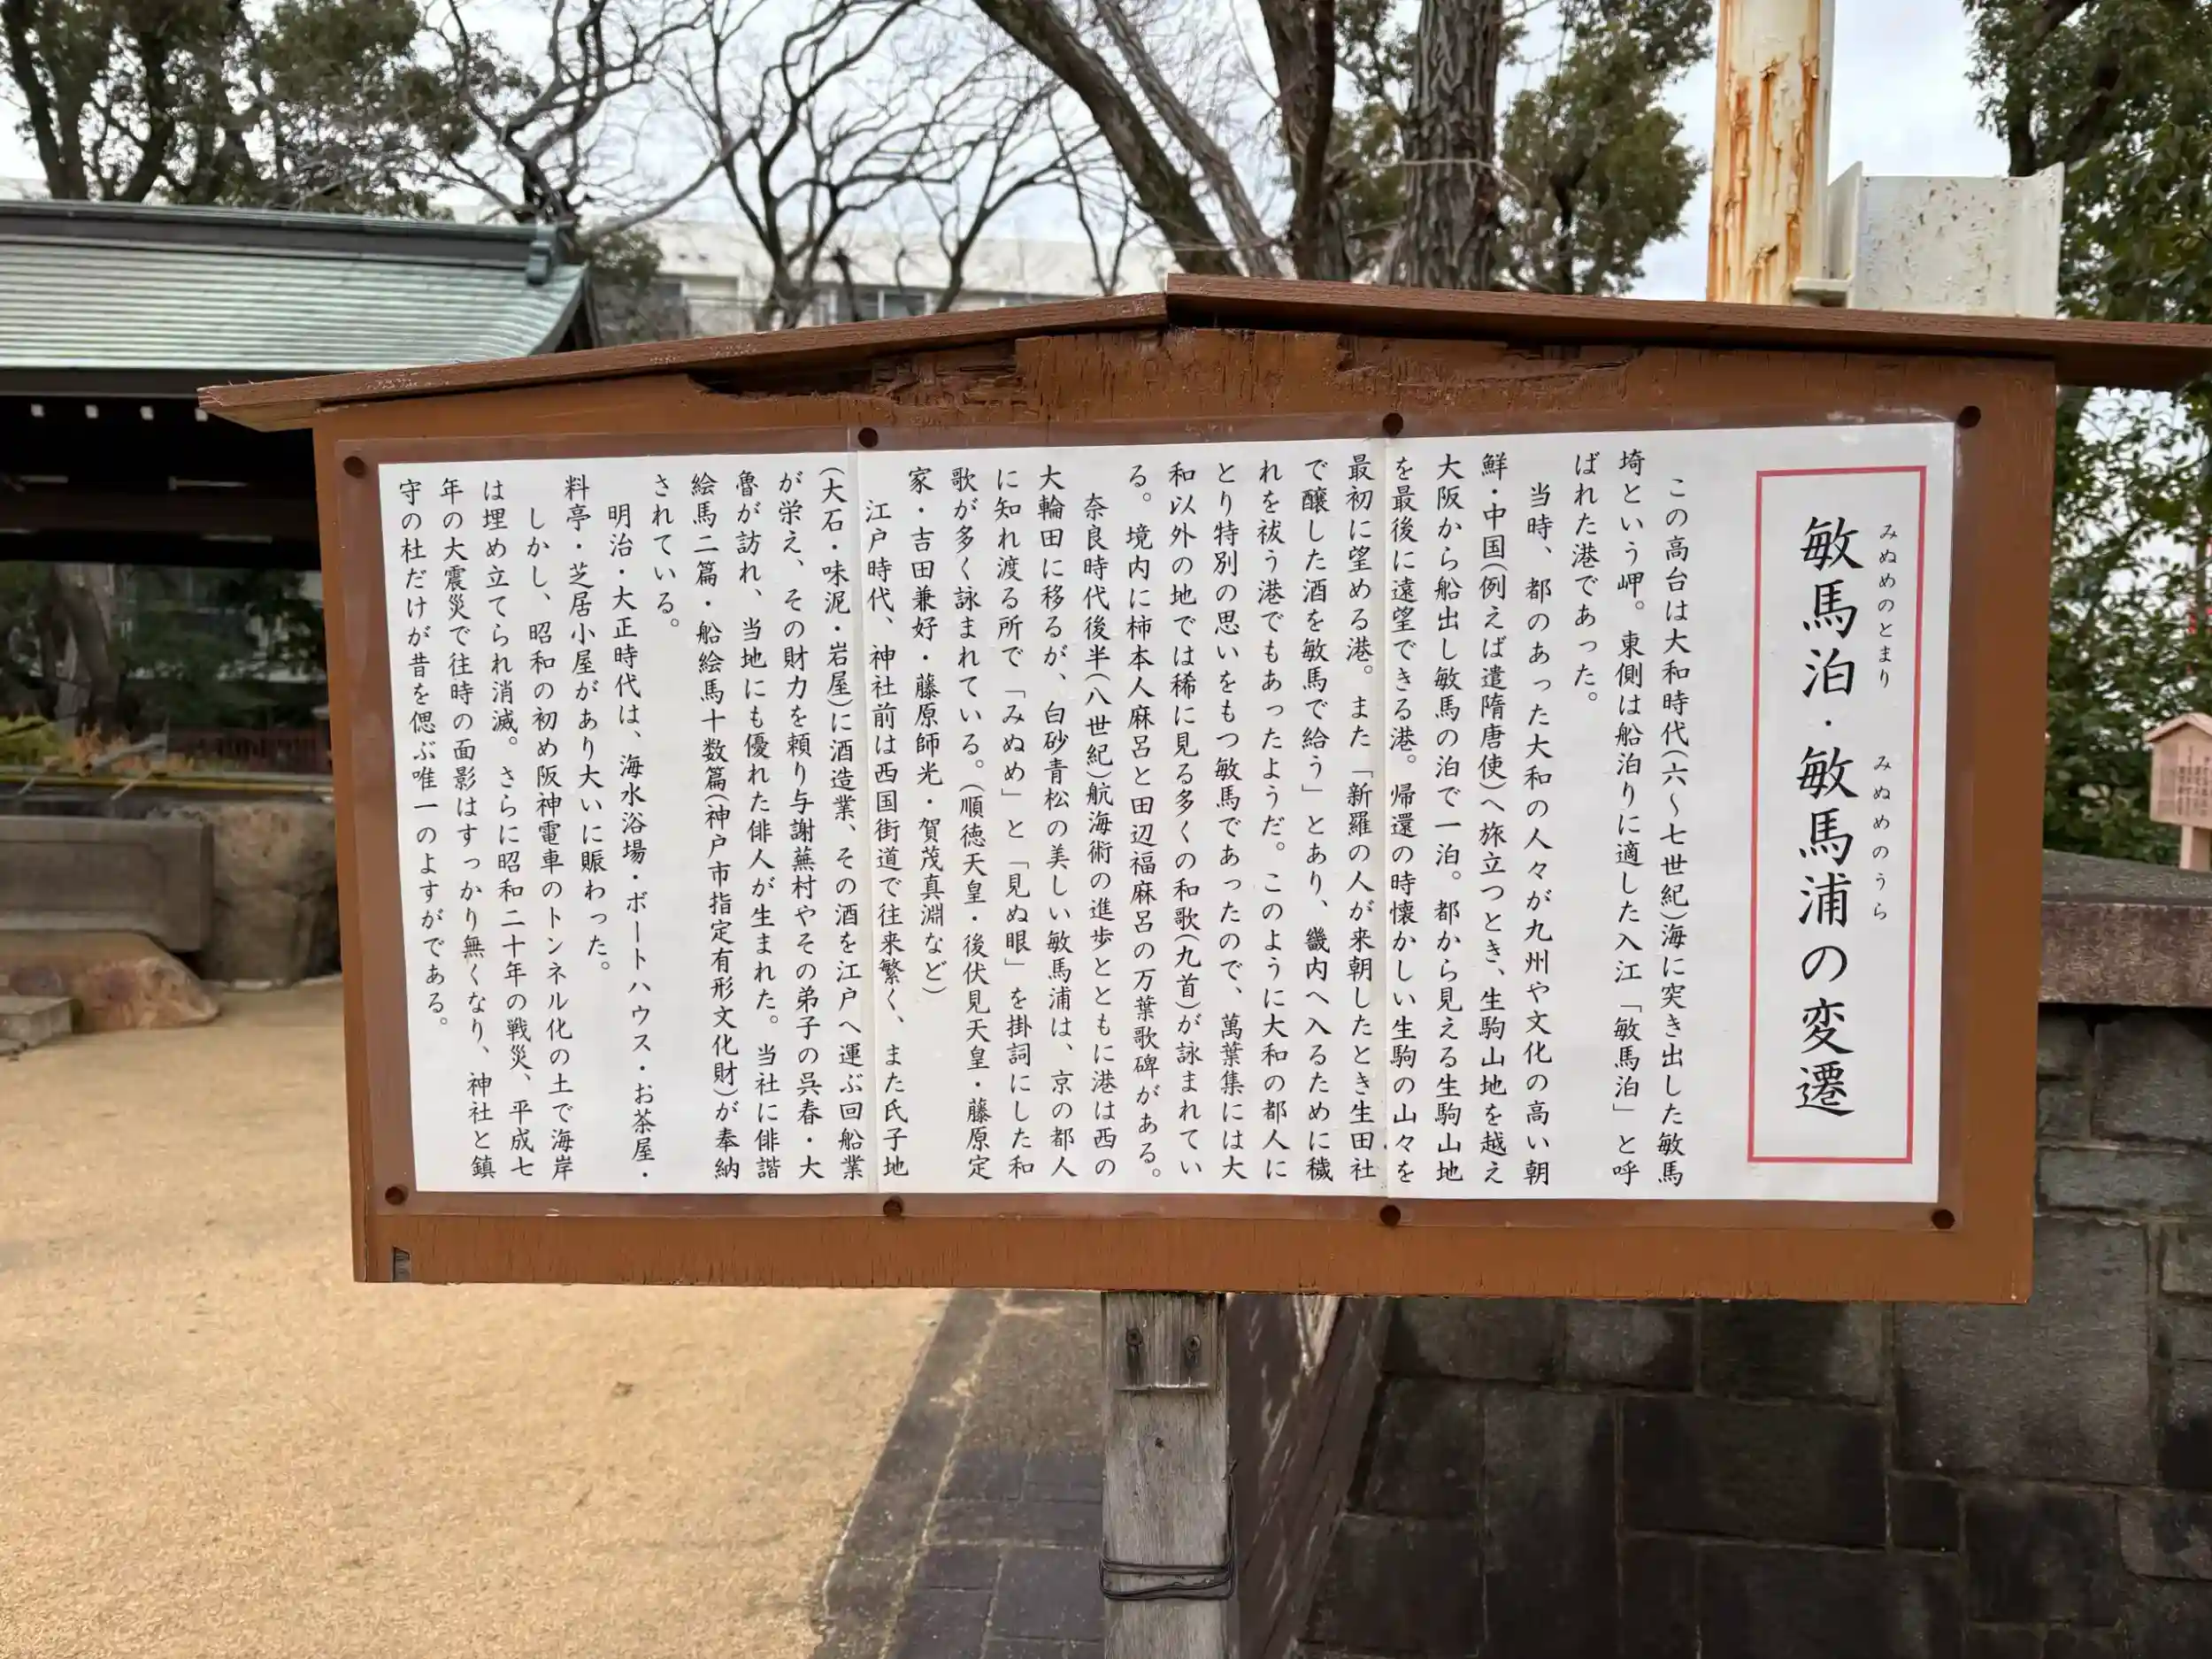 みぬめのとまり　みぬめのうら
敏馬泊・敏馬浦の変遷
この高台は大和時代(六〜七世紀)海に突き出した敏馬
埼という岬。東側は船泊りに適した入江「敏馬泊」と呼
ばれた港であった。
当時、都のあった大和の人々が九州や文化の高い朝
鮮・中国(例えば遣隋唐使)へ旅立つとき、生駒山地を越え
大阪から船出し敏馬の泊で一泊。都から見える生駒山地
を最後に遠望できる港。帰還の時懐かしい生駒の山々を
最初に望める港。また「新羅の人が来朝したとき生田社
で醸した酒を敏馬で給う」とあり、畿内へ入るために穢
れを祓う港でもあったようだ。このように大和の都人に
とり特別の思いをもつ敏馬であったので、萬葉集には大
和以外の地では稀に見る多くの和歌(九首)が詠まれてい
る。境内に柿本人麻呂と田辺福麻呂の万葉歌碑がある。
奈良時代後半(八世紀)航海術の進歩とともに港は西の
大輪田に移るが、白砂青松の美しい敏馬浦は、京の都人
に知れ渡る所で「みぬめ」と「見ぬ眼」を掛詞にした和
歌が多く詠まれている。(順徳天皇・後伏見天皇・藤原定
家・吉田兼好・藤原師光・賀茂真淵など)
江戸時代、神社前は西国街道で往来繁く、また氏子地
(大石・味泥・岩屋)に酒造業、その酒を江戸へ運ぶ回船業
が栄え、その財力を頼り与謝蕪村やその弟子の呉春・大
魯が訪れ、当地にも優れた俳人が生まれた。当社に俳諧
絵馬二篇・船絵馬十数篇(神戸市指定有形文化財)が奉納
されている。
明治・大正時代は、海水浴場・ボートハウス・お茶屋・
料亭・芝居小屋があり大いに賑わった。
しかし、昭和の初め阪神電車のトンネル化の土で海岸
は埋め立てられ消滅。さらに昭和二十年の戦災、平成七
年の大震災で往時の面影はすっかり無くなり、神社と鎮
守の杜だけが昔を偲ぶ唯一のよすがである。